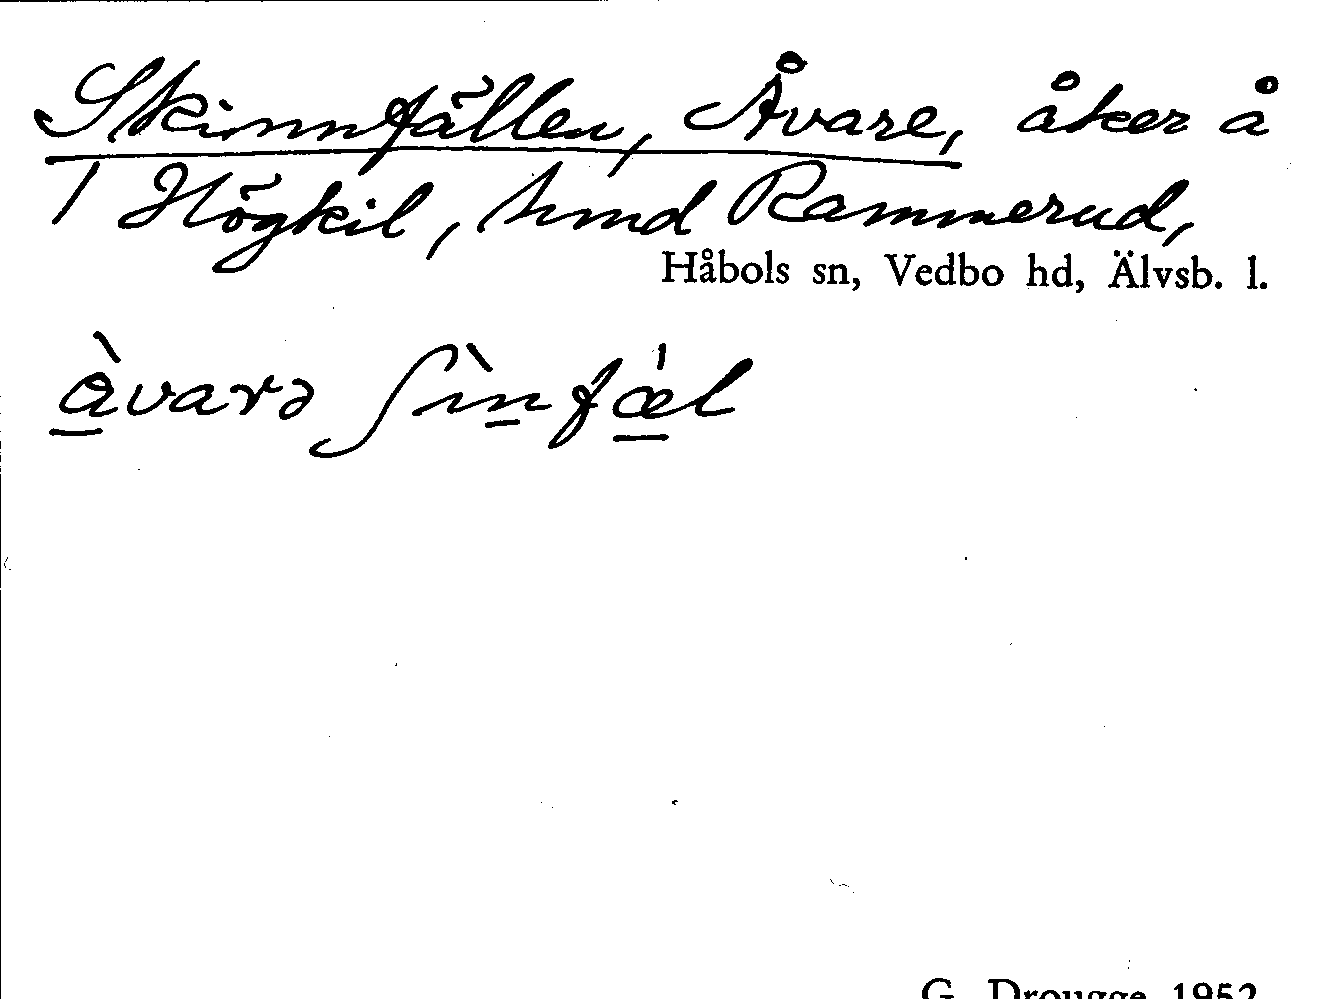 Skinnfällen, Åvare, åker å
1 Högkil, hmd Rammerud,
Håbols sn, Vedbo hd, Älvsb. l.
àvarə ʃìnfæ̍l
G. Drougge 1952